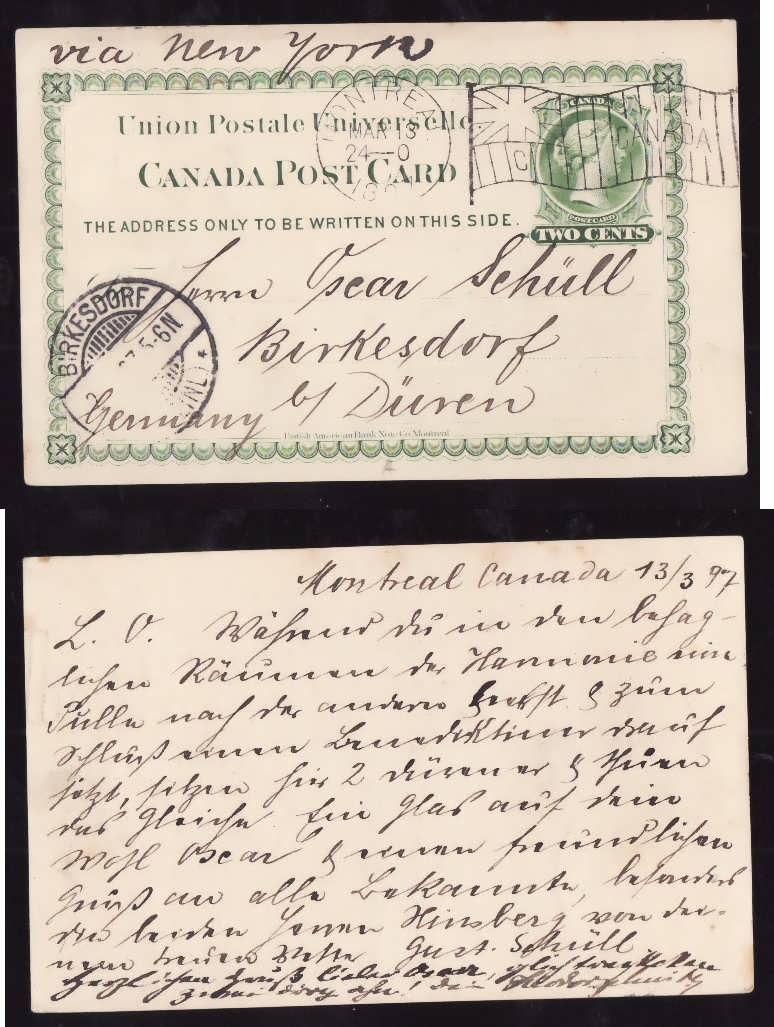 via New York
Union Postale Universelle.
CANADA POST CARD
THE ADDRESS ONLY TO BE WRITTEN ON THIS SIDE.
MONTREAL
MAR 13
24-0
CANADA
CANADA
POST CARD
TWO CENTS
Herrn Oscar Schüll
Birkesdorf
b/ Düren
Germany
BIRKESDORF
5-6N.
British American Bank Note Co. Montreal
Montreal Canada 13/3 97
L. O. Während du in den behag-
lichen Räumen der Harmonie eine
Pulle nach der anderen & zum
Schluß einen Benediktiner drauf
setzt, sitzen hier 2 Dürener & thuen
das Gleiche. Ein Glas auf dein
Wohl Oscar & einen freundlichen
Gruß an alle Bekannte, besonders
die beiden Herren Hinsberg von dei-
nem treuen Vetter Gust. Schüll
Herzlichen Gruß lieber Oscar,